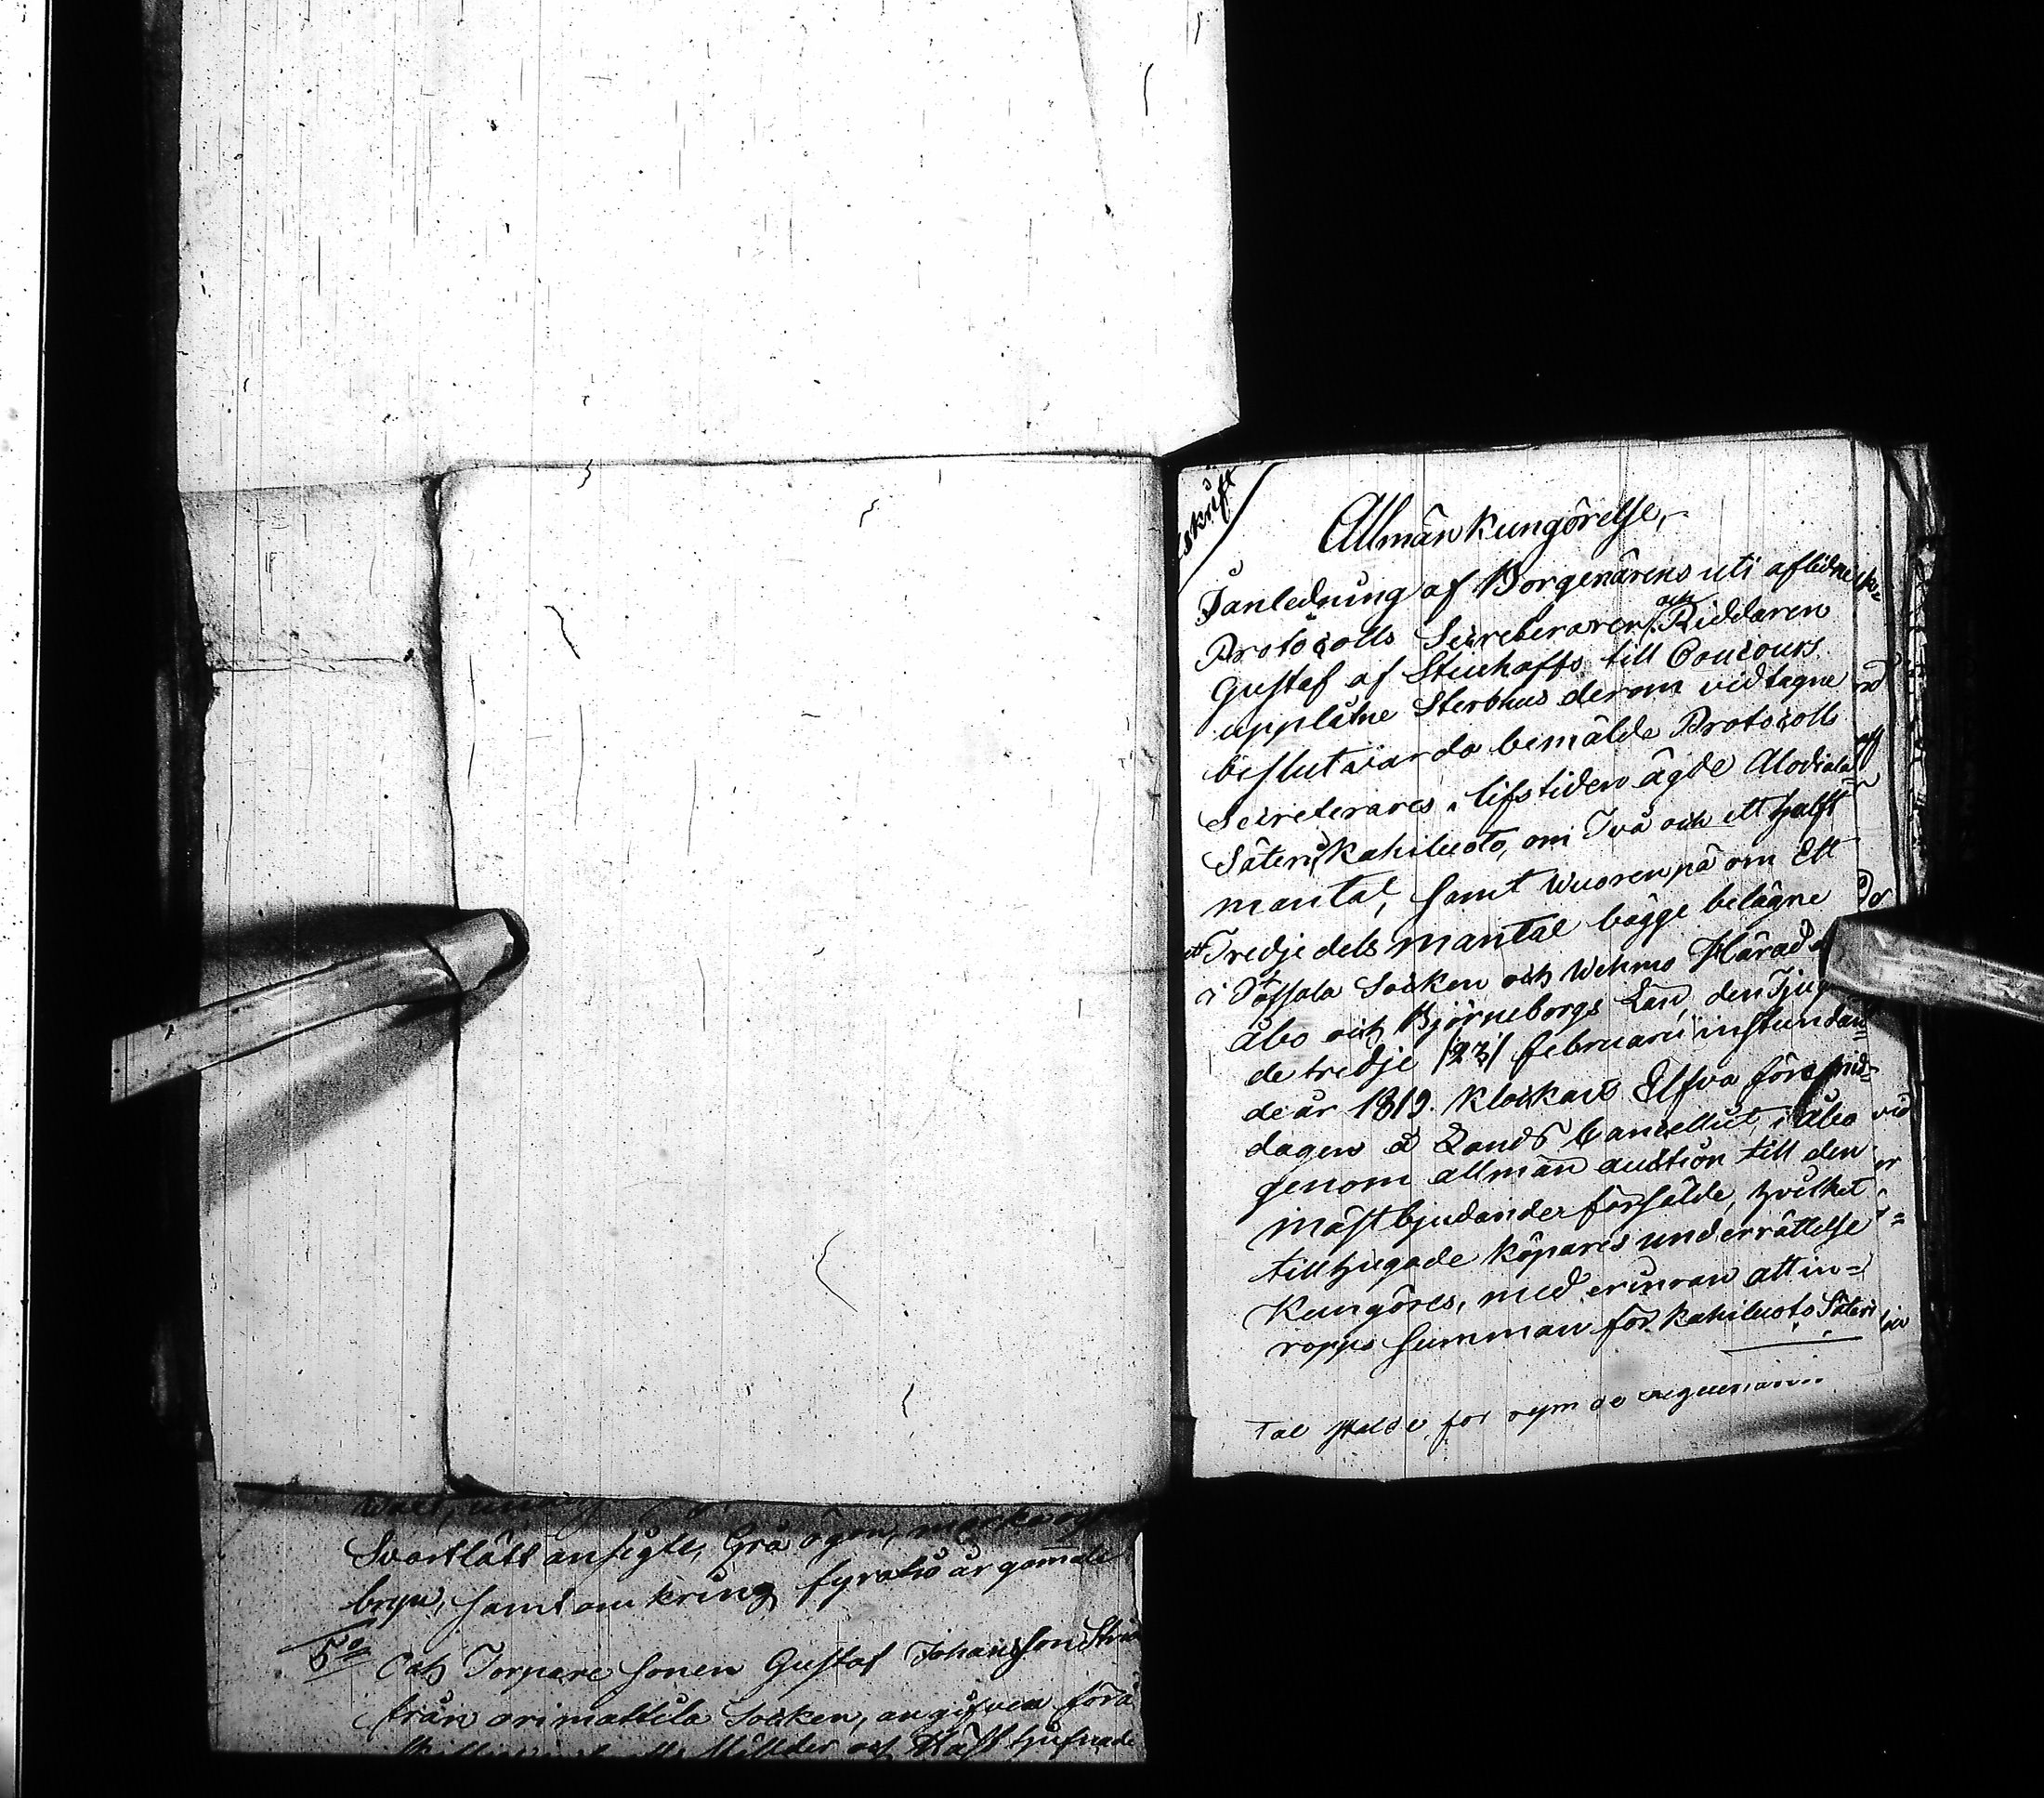 Afskrift
Allmän kungörelse,
I anledning af Borgenärens uti aflidne
Protocolls Secreteraren och Riddaren
Gustaf af Stenhoffs till Concours
upplåtne Sterbhus derom vidtagne
beslut varda bemälde Protocolls
Secreterares i lifstiden ägde Alodiala
Säteri Kahiluoto, om Två och ett halft
mantal, samt Wuorenpä om Ett
ett Tredjedels mantal bägge belägne
i Töfsala Socken och Wehmo Härad af
Åbo och Björneborgs Län, den Tjugu
de tredje /23/ februarii instundan=
de år 1819. Klockans Elfva föremid=
dagen å Lands Cancelliet i Åbo
genom allmän auction till den
mästbjudander försålde, hvilket
tillhugade köpares underrättelse
Kungöres, med erinran att in=
ropps summan för Kahiluoto Säteri
Svartlätt ansigte, Grå ögon, mörka ögon
bryn, samt omkring fyratio år gammale
5o
Och Torpare sonen Gustaf Johansson
från orimattila Socken, angifven för
och Häst tjufnade